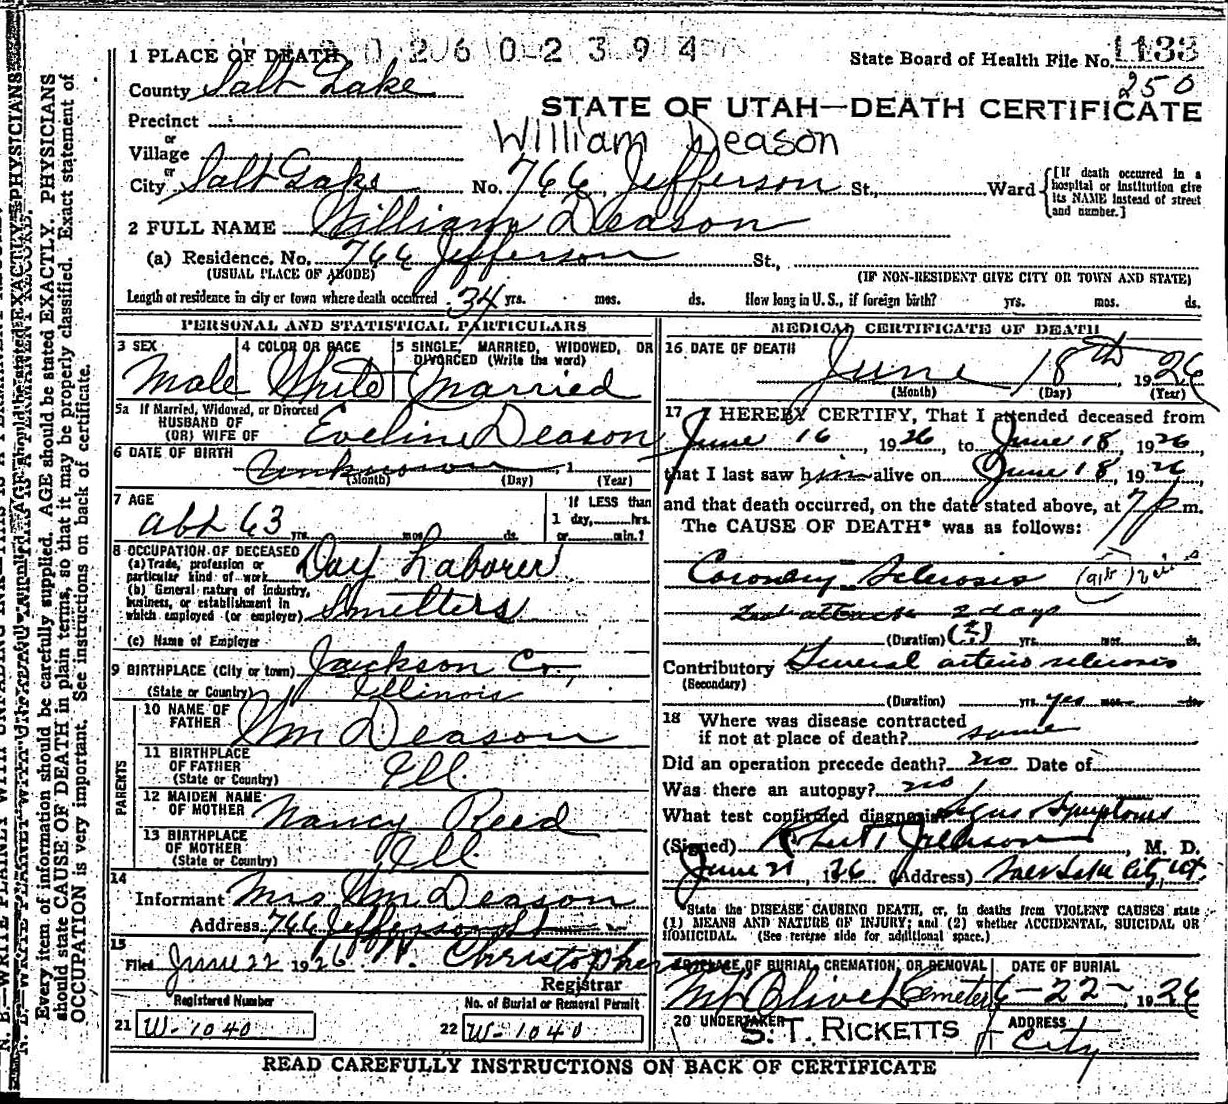 2 6 0 2 3 9 4
1 PLACE OF DEATH
State Board of Health File No. 1133
250
County Salt Lake
STATE OF UTAH—DEATH CERTIFICATE
Precinct
or
Village
William Deason
or
City Salt Lake No. 766 Jefferson St., Ward
[If death occurred in a hospital or institution give its NAME instead of street and number.]
2 FULL NAME William Deason
(a) Residence. No. 766 Jefferson St.,
(USUAL PLACE OF ABODE) (IF NON-RESIDENT GIVE CITY OR TOWN AND STATE)
Length of residence in city or town where death occurred 34 yrs. mos. ds. How long in U. S., if foreign birth? yrs. mos. ds.
PERSONAL AND STATISTICAL PARTICULARS
3 SEX 4 COLOR OR RACE 5 SINGLE, MARRIED, WIDOWED, OR DIVORCED (Write the word)
Male White Married
5a If Married, Widowed, or Divorced
HUSBAND OF
(OR) WIFE OF Eveline Deason
6 DATE OF BIRTH Unknown, 1
(Month) (Day) (Year)
7 AGE If LESS than
abt 63 yrs. mos. ds. 1 day, hrs.
or min.?
8 OCCUPATION OF DECEASED
(a) Trade, profession or particular kind of work Day Laborer
(b) General nature of industry, business, or establishment in which employed (or employer) Smelters
(c) Name of Employer
9 BIRTHPLACE (City or town) Jackson Co.,
(State or Country) Illinois
PARENTS
10 NAME OF FATHER Wm Deason
11 BIRTHPLACE OF FATHER (State or Country) Ill
12 MAIDEN NAME OF MOTHER Nancy Reed
13 BIRTHPLACE OF MOTHER (State or Country) Ill
14
Informant Mrs Wm Deason
Address 766 Jefferson St
15
Filed June 22 1926. W. Christopherson
Registrar
Registered Number No. of Burial or Removal Permit
21 W-1040 22 W-1040
MEDICAL CERTIFICATE OF DEATH
16 DATE OF DEATH
June 18th, 1926
(Month) (Day) (Year)
17 I HEREBY CERTIFY, That I attended deceased from
June 16, 1926, to June 18, 1926
that I last saw him alive on June 18, 1926
and that death occurred, on the date stated above, at 7 p m.
The CAUSE OF DEATH* was as follows:
Coronary Sclerosis (91b)
2nd attack 2 days
(Duration) (?) yrs. mos. ds.
Contributory General arterio sclerosis
(Secondary)
(Duration) yrs. yes mos. ds.
18 Where was disease contracted
if not at place of death? same
Did an operation precede death? no Date of
Was there an autopsy? no
What test confirmed diagnosis? Signs & Symptoms
(Signed) Robert, M. D.
June 21, 1926 (Address) Salt Lake City, Ut.
*State the DISEASE CAUSING DEATH, or, in deaths from VIOLENT CAUSES state
(1) MEANS AND NATURE OF INJURY; and (2) whether ACCIDENTAL, SUICIDAL OR
HOMICIDAL. (See reverse side for additional space.)
19 PLACE OF BURIAL, CREMATION, OR REMOVAL DATE OF BURIAL
Mt Olivet Cemetery 6-22-, 1926
20 UNDERTAKER ADDRESS
S. T. RICKETTS City
READ CAREFULLY INSTRUCTIONS ON BACK OF CERTIFICATE
Every item of information should be carefully supplied. AGE should be stated EXACTLY. PHYSICIANS
should state CAUSE OF DEATH in plain terms, so that it may be properly classified. Exact statement of
OCCUPATION is very important. See instructions on back of certificate.